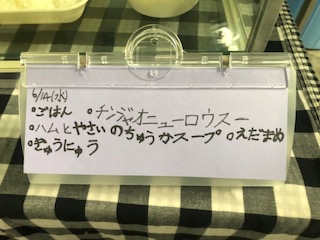 6/14(水)
•ごはん •チンジャオニューロウスー
•ハムとやさいのちゅうかスープ •えだまめ
•ぎゅうにゅう